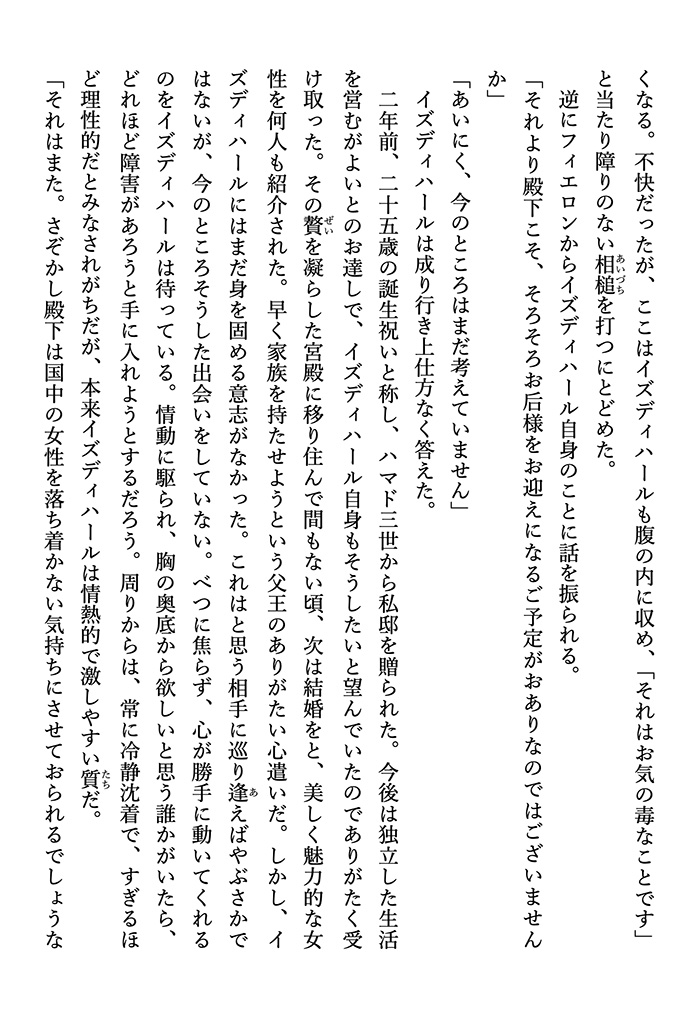 くなる。不快だったが、ここはイズディハールも腹の内に収め、「それはお気の毒なことです」
と当たり障りのない相槌を打つにとどめた。
逆にフィエロンからイズディハール自身のことに話を振られる。
「それより殿下こそ、そろそろお后様をお迎えになるご予定がおありなのではございません
か」
「あいにく、今のところはまだ考えていません」
イズディハールは成り行き上仕方なく答えた。
二年前、二十五歳の誕生祝いと称し、ハマド三世から私邸を贈られた。今後は独立した生活
を営むがよいとのお達しで、イズディハール自身もそうしたいと望んでいたのでありがたく受
け取った。その贅を凝らした宮殿に移り住んで間もない頃、次は結婚をと、美しく魅力的な女
性を何人も紹介された。早く家族を持たせようという父王のありがたい心遣いだ。しかし、イ
ズディハールにはまだ身を固める意志がなかった。これはと思う相手に巡り逢えばやぶさかで
はないが、今のところそうした出会いをしていない。べつに焦らず、心が勝手に動いてくれる
のをイズディハールは待っている。情動に駆られ、胸の奥底から欲しいと思う誰かがいたら、
どれほど障害があろうと手に入れようとするだろう。周りからは、常に冷静沈着で、すぎるほ
ど理性的だとみなされがちだが、本来イズディハールは情熱的で激しやすい質だ。
「それはまた。さぞかし殿下は国中の女性を落ち着かない気持ちにさせておられるでしょうな